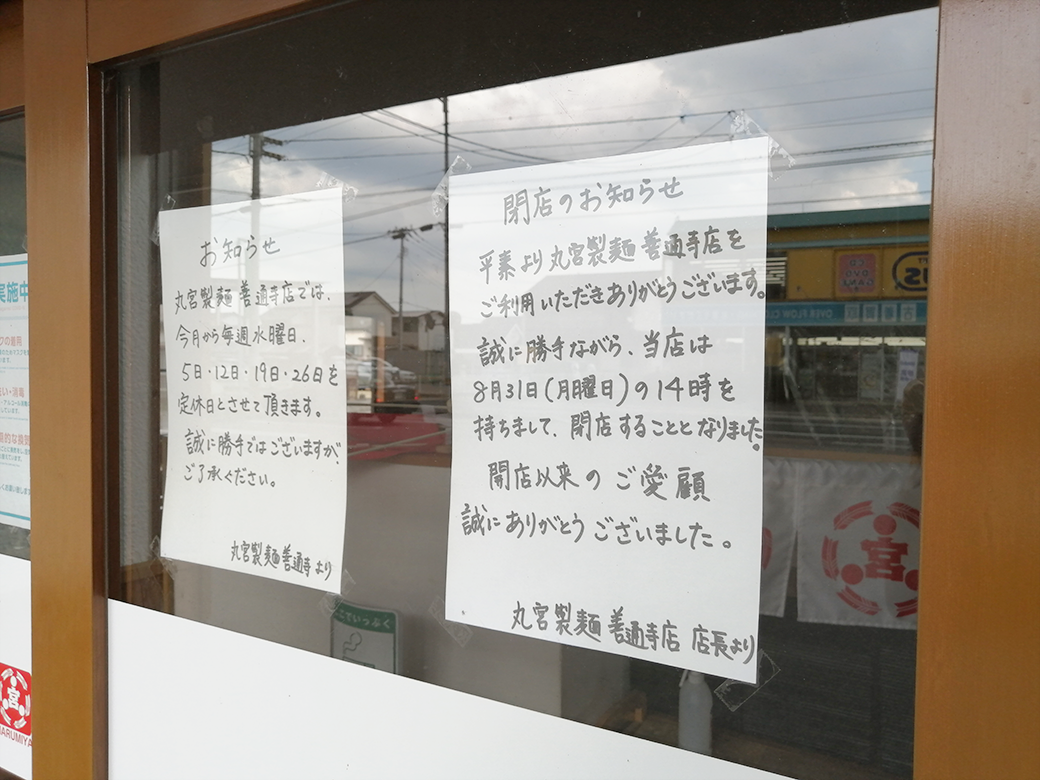 お知らせ
丸宮製麺 善通寺店では、
今月から毎週水曜日、
5日・12日・19日・26日を
定休日とさせて頂きます。
誠に勝手ではございますが、
ご了承ください。
丸宮製麺 善通寺より
閉店のお知らせ
平素より丸宮製麺 善通寺店を
ご利用いただきありがとうございます。
誠に勝手ながら、当店は
8月31日(月曜日)の14時を
持ちまして、閉店することとなりました。
開店以来のご愛顧
誠にありがとうございました。
丸宮製麺 善通寺店 店長より
実施中
宮
MARUMIYA
宮
OVER FLOW